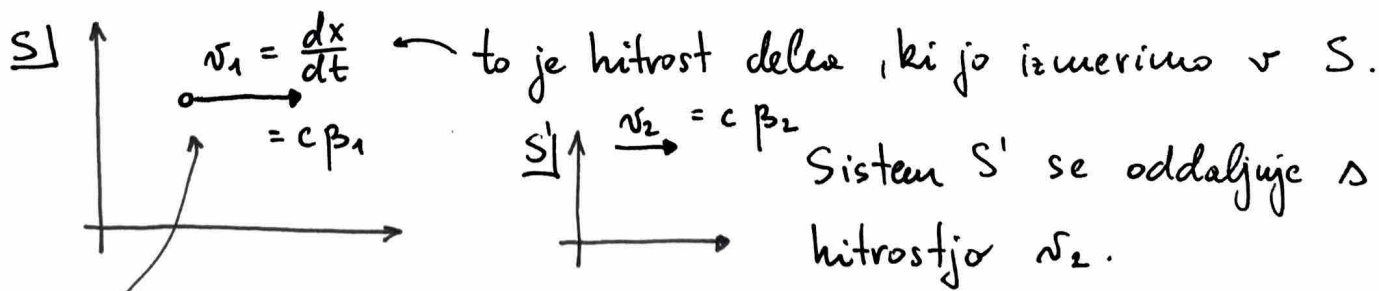 S
v₁ = dx/dt ← to je hitrost delca, ki jo izmerimo v S.
= cβ₁
S' v₂ = cβ₂
Sistem S' se oddaljuje s
hitrostjo v₂.